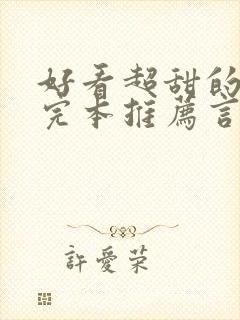 好看超甜的
完本推薦言
許愛荣